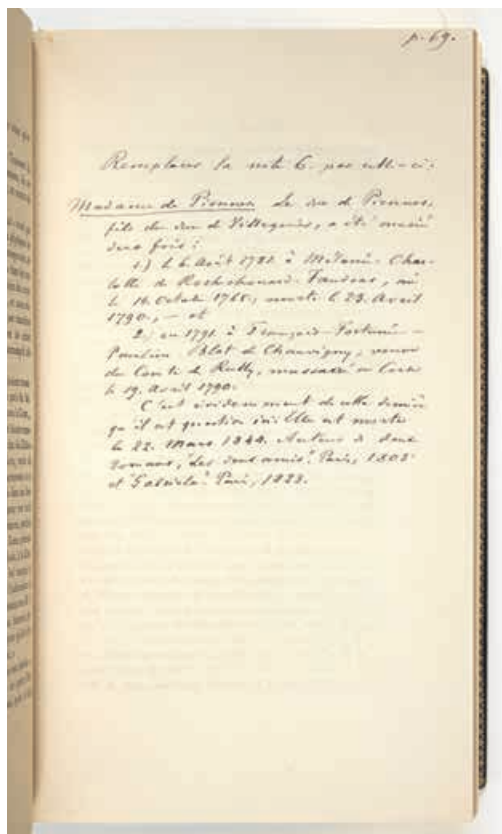 p. 69.
Remplacer la note 6. par celle-ci:
Madame de Piennes. Le duc de Piennes,
fils du duc de Villequier, a été marié
deux fois:
1.) le 6 Août 1781 à Mélanie-Char-
lotte de Rochechouart-Faudoas, née
le 14. Octobre 1765, morte le 23. Avril
1790, - et
2.) en 1791 à Françoise-Fortunée-
Pauline Blot de Chauvigny, veuve
du Comte de Rully, massacré en Corse
le 19. Avril 1790.
C'est évidemment de cette dernière
qu'il est question ici. Elle est morte
le 22. Mars 1844. Auteur de deux
romans, "Les deux amis". Paris, 1803
et "Gabriela". Paris, 1823.